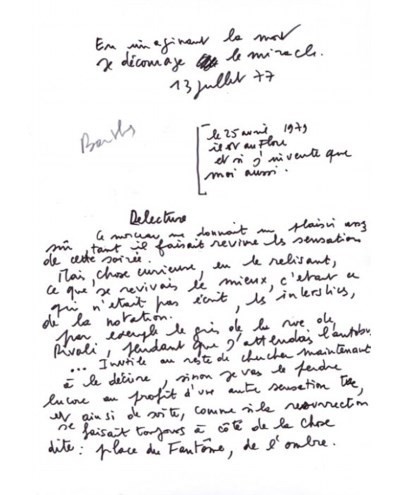 En imaginant la mort
je décourage le miracle.
13 juillet 77
Barthes
le 25 avril 1979
il est au Flore
et si j'invente que
moi aussi.
Relecture
Ce morceau me donnait un plaisir assez
sûr, tant il faisait revivre les sensations
de cette soirée.
Mais, chose curieuse, en le relisant,
ce que je revivais le mieux, c'était ce
qui n'était pas écrit, les interstices,
de la notation.
par exemple le gris de la rue de
Rivoli, pendant que j'attendais l'autobus,
... Inutile au reste de chercher maintenant
à le décrire, sinon je vais le perdre
encore au profit d'une autre sensation tue,
et ainsi de suite, comme si la resurrection
se faisait toujours à côté de la chose
dite: place du Fantôme, de l'ombre.